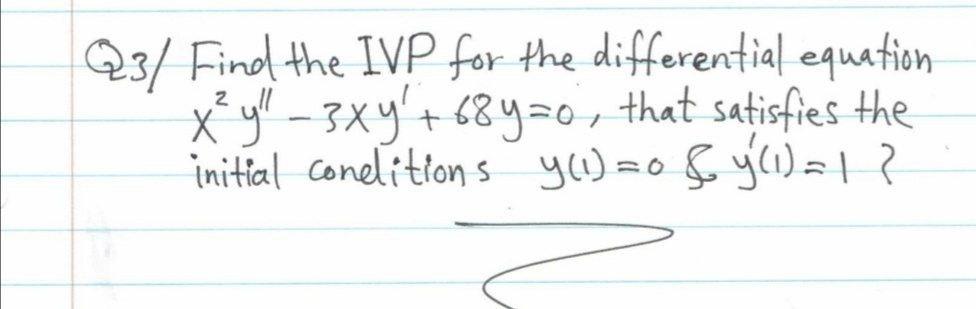 Q3/ Find the IVP for the differential equation
x² y'' - 3xy' + 68y=0, that satisfies the
initial conditions y(1)=0 & y'(1)=1 ?